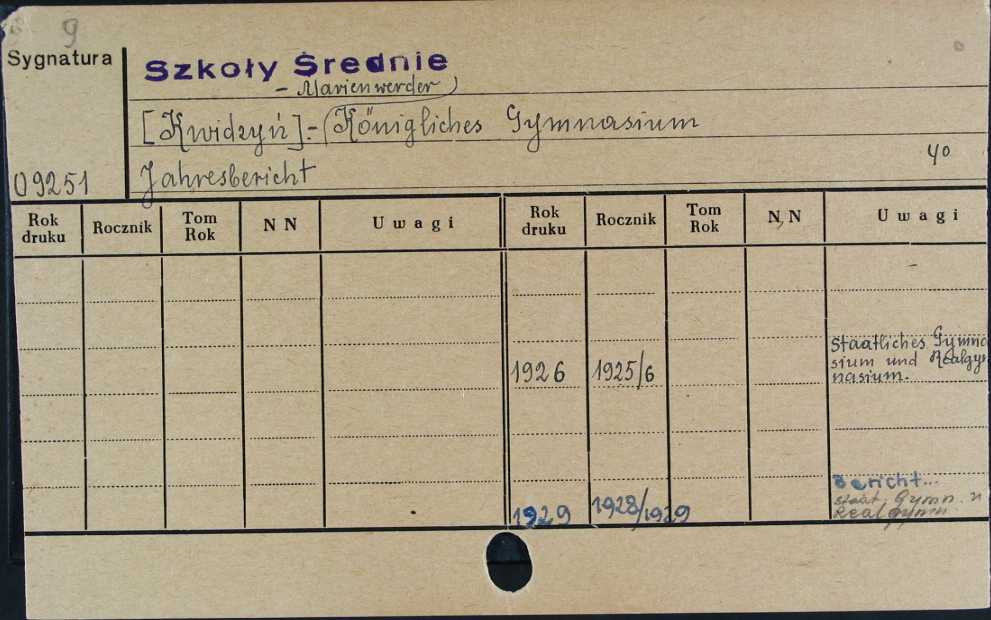 9
Sygnatura
Szkoły Średnie
- Marienwerder)
[Kwidzyń].- (Königliches Gymnasium
40
09251
Jahresbericht
Rok druku Rocznik Tom Rok N N Uwagi Rok druku Rocznik Tom Rok N, N Uwagi
Staatliches Gymna
sium und Realgym
1926 1925/6 nasium.
Bericht...
staat. Gymn. u
1929 1928/1929 Realgymn